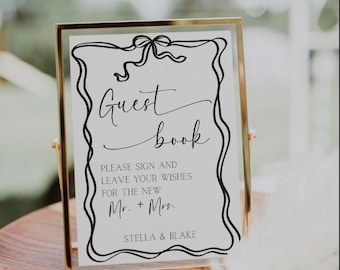 Guest
book
PLEASE SIGN AND
LEAVE YOUR WISHES
FOR THE NEW
Mr. + Mrs.
STELLA & BLAKE